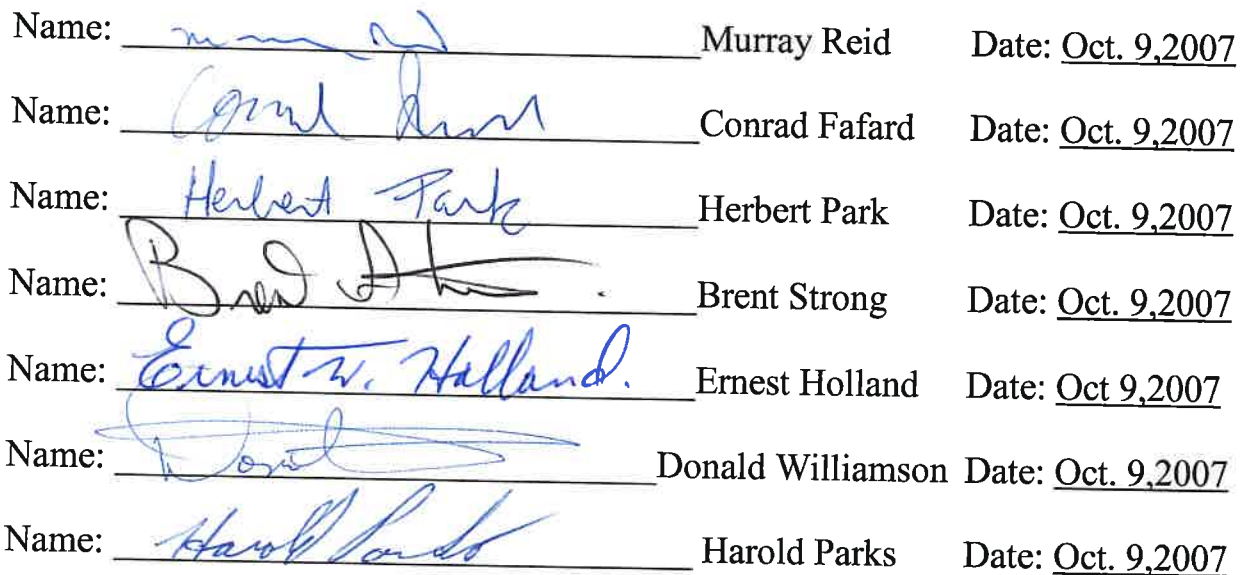 Name: Murray Reid Date: Oct. 9,2007
Name: Conrad Fafard Date: Oct. 9,2007
Name: Herbert Park Herbert Park Date: Oct. 9,2007
Name: Brent Strong Date: Oct. 9,2007
Name: Ernest W. Holland. Ernest Holland Date: Oct 9,2007
Name: Donald Williamson Date: Oct. 9,2007
Name: Harold Parks Harold Parks Date: Oct. 9,2007